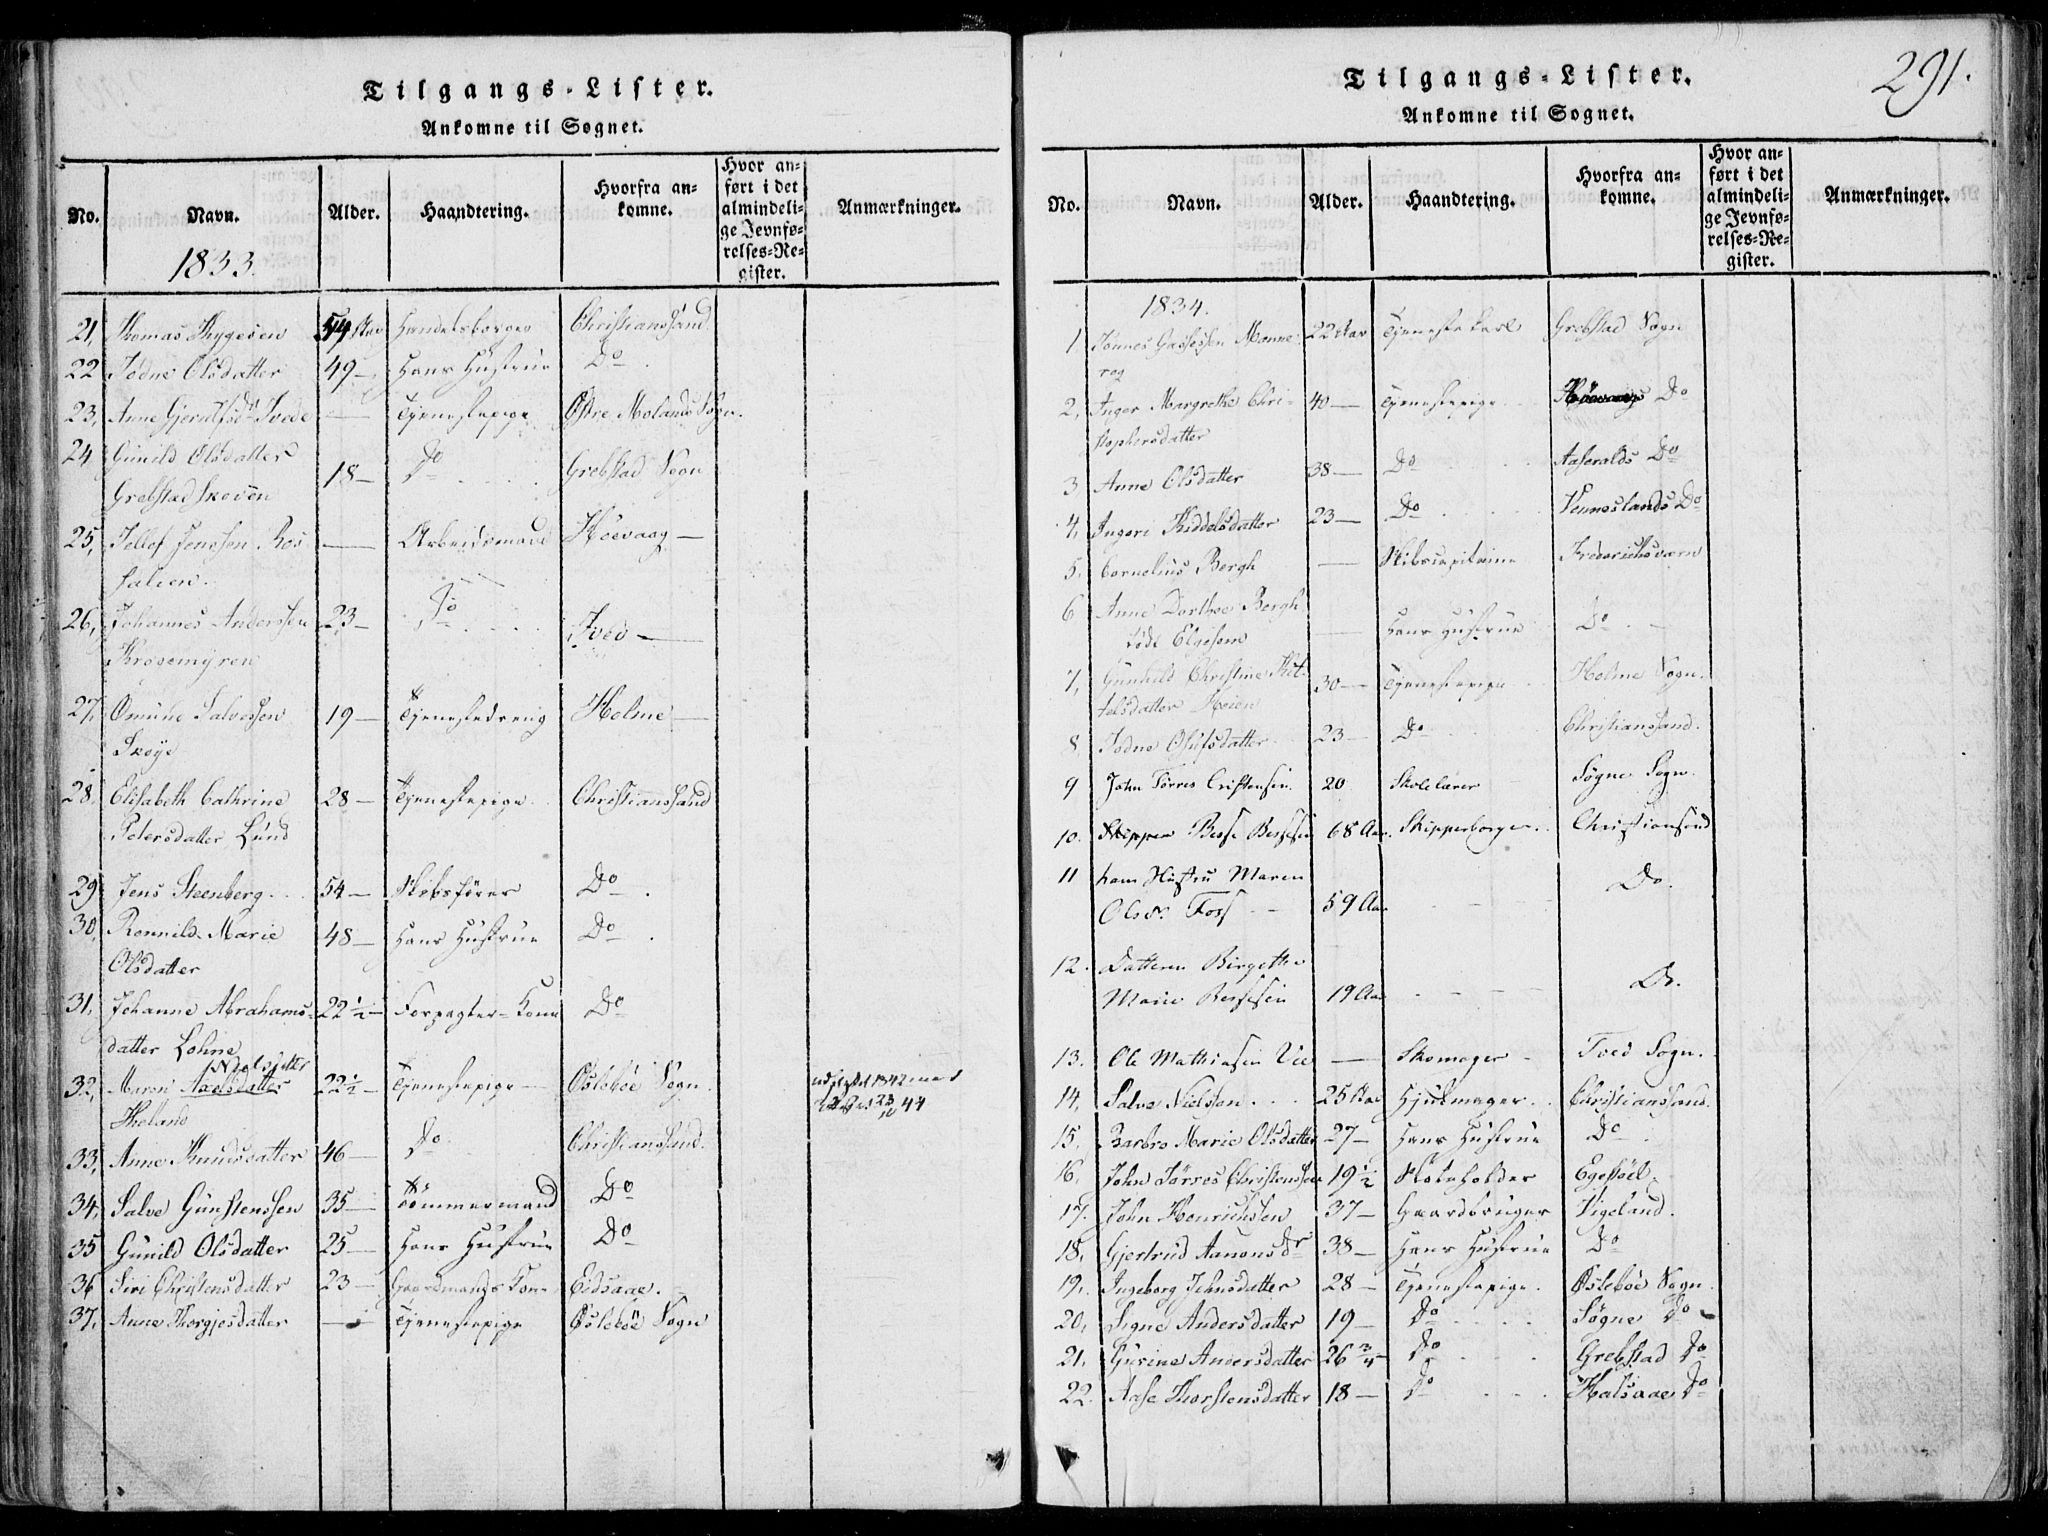 Tilgangs-Lister.
Ankomne til Sognet.
No. Navn. Alder. Haandtering. Hvorfra ankomne. Hvor anført i det almindelige Jevnførelses-Register. Anmærkninger.
1833.
21, Thomas Thygesen 54 Aar Handelsborger Christianssand
22 Jödne Olsdatter 49 — Hans Hustrue Do
23, Anne Gjerulfsdr Tvede — Tjenestepige Østre Molands Sogn.
24 Gunild Olsdatter 18 — Do Grebstad Sogn
Grebstadskoven
25, Tellef Jenssen Ros — Arbeidsmand Höevaag —
salien.
26, Johannes Anderssen 23 — Do Tved —
Krosemyren
27, Omund Salvessen 19 — Tjenestedreng Holme —
Skoye
28, Elisabeth Cathrine 28 — Tjenestepige Christianssand
Petersdatter Lund
29 Jens Steenberg 54 — Skibsförer Do
30, Ronnild Marie 48 — Hans Hustrue Do
Olsdatter
31, Johanne Abrahams- 22 1/2 — Forpagter-Kone Do
datter Lohne
Nielsdatter
32, Maren Axelsdatter 22 1/2 — Tjenestepige — Ösleböe Sogn. 1842
44
33, Anne Knudsdatter 46 — Do Christianssand.
34, Salve Gunstenssen 35 — Tömmermand Do
35 Gunild Olsdatter 25 — Hans Hustrue Do
36 Siri Christensdatter 23 — Gaardmands Kone Eidsaae.
37, Anne Thorgjesdatter — Tjenestepige Ösleböe Sogn
Tilgangs-Lister.
291.
Ankomne til Sognet.
No. Navn. Alder. Haandtering. Hvorfra ankomne. Hvor anført i det almindelige Jevnførelses-Register. Anmærkninger.
1834.
1, Tönnes Gassessen Monne- 22 Aar Tjenestekarl Grebstad Sogn
rog
2, Inger Margrethe Chri- 40 — Tjenestepige Do
stophersdatter
3 Anne Olsdatter 38 — Do Aaseralds Do
4, Ingeri Kiddelsdatter 23 — Do Venneslands Do
5, Cornelius Bergh — Skibscapitaine Frederichsværn
6 Anne Dorthea Bergh — Hans Hustrue Do
födt Elgesem
7, Gunhild Christine Kit- 30 — Tjenestepige Holme Sogn.
telsdatter Heien
8, Jödne Olufsdatter 23 — Do Christianssand.
9 John Törres Cristensen 20 Skolelærer Sögne Sogn.
10. Skipper Besse Bessesen 68 Aar Skipperborger Christiansand
11 hans Hustru Maren
Olsdr. Foss 59 Aar Do.
12. Datteren Birgette
Marie Bessesen 19 Aar Do.
13. Ole Mathiasen Vie — Skomager — Tved Sogn.
14, Salve Nielssen 25 Aar Hjulmager Christianssand.
15, Barbro Marie Olsdatter 27 — Hans Hustrue Do
16, John Törres Christenssen 19 1/2 Skoleholder Egestöl
17. John Henrichssen 37 — Gaardbruger Vigeland.
18, Gjertrud Aanonsdr 38 — Hans Hustrue Do
19, Ingeborg Johnsdatter 28 — Tjenestepige. Ösleböe Sogn.
20, Signe Andersdatter 19 — Do Sögne Do
21, Gurine Andersdatter 26 3/4 — Do Grebstad Do
22. Aase Thorstensdatter 18 — Do Halsaae Do